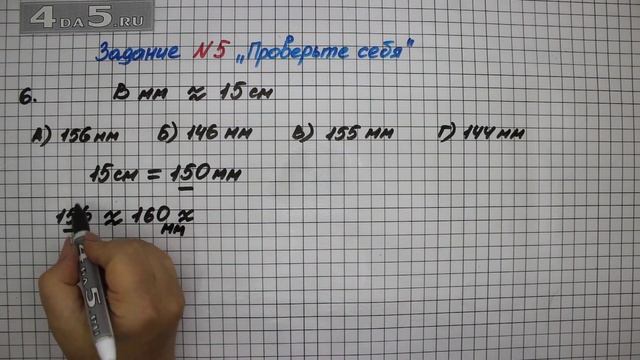 4DA5.RU
Задание N5 „Проверьте себя"
6. В мм ≈ 15 см
А) 156 мм Б) 146 мм В) 155 мм Г) 144 мм
15 см = 150 мм
156 ≈ 160 х
мм